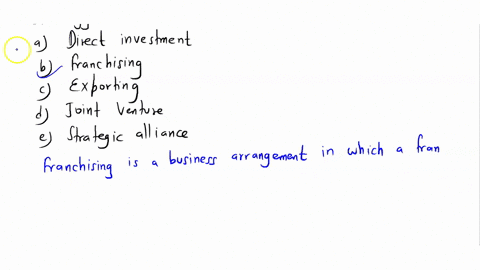 a) Direct investment
b) franchising
c) Exporting
d) Joint Venture
e) Strategic alliance
franchising is a business arrangement in which a fran